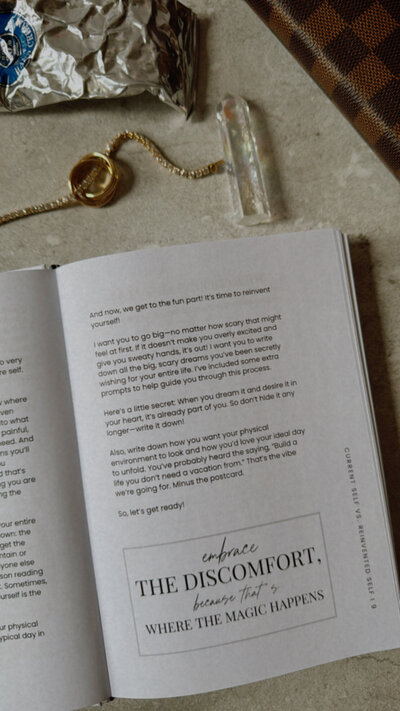 o very
re self.
where
ven
to what
painful,
need. And
ns you'll
u
d that's
g you are
ng the
your entire
own: the
get the
ntain or
yone else
son reading
. Sometimes,
urself is the
ur physical
ypical day in
And now, we get to the fun part! It's time to reinvent
yourself!
I want you to go big—no matter how scary that might
feel at first. If it doesn't make you overly excited and
give you sweaty hands, it's out! I want you to write
down all the big, scary dreams you've been secretly
wishing for your entire life. I've included some extra
prompts to help guide you through this process.
Here's a little secret: When you dream it and desire it in
your heart, it's already part of you. So don't hide it any
longer—write it down!
Also, write down how you want your physical
environment to look and how you'd love your ideal day
to unfold. You've probably heard the saying, "Build a
life you don't need a vacation from." That's the vibe
we're going for. Minus the postcard.
So, let's get ready!
embrace
THE DISCOMFORT,
because that's
WHERE THE MAGIC HAPPENS
CURRENT SELF VS. REINVENTED SELF | 9